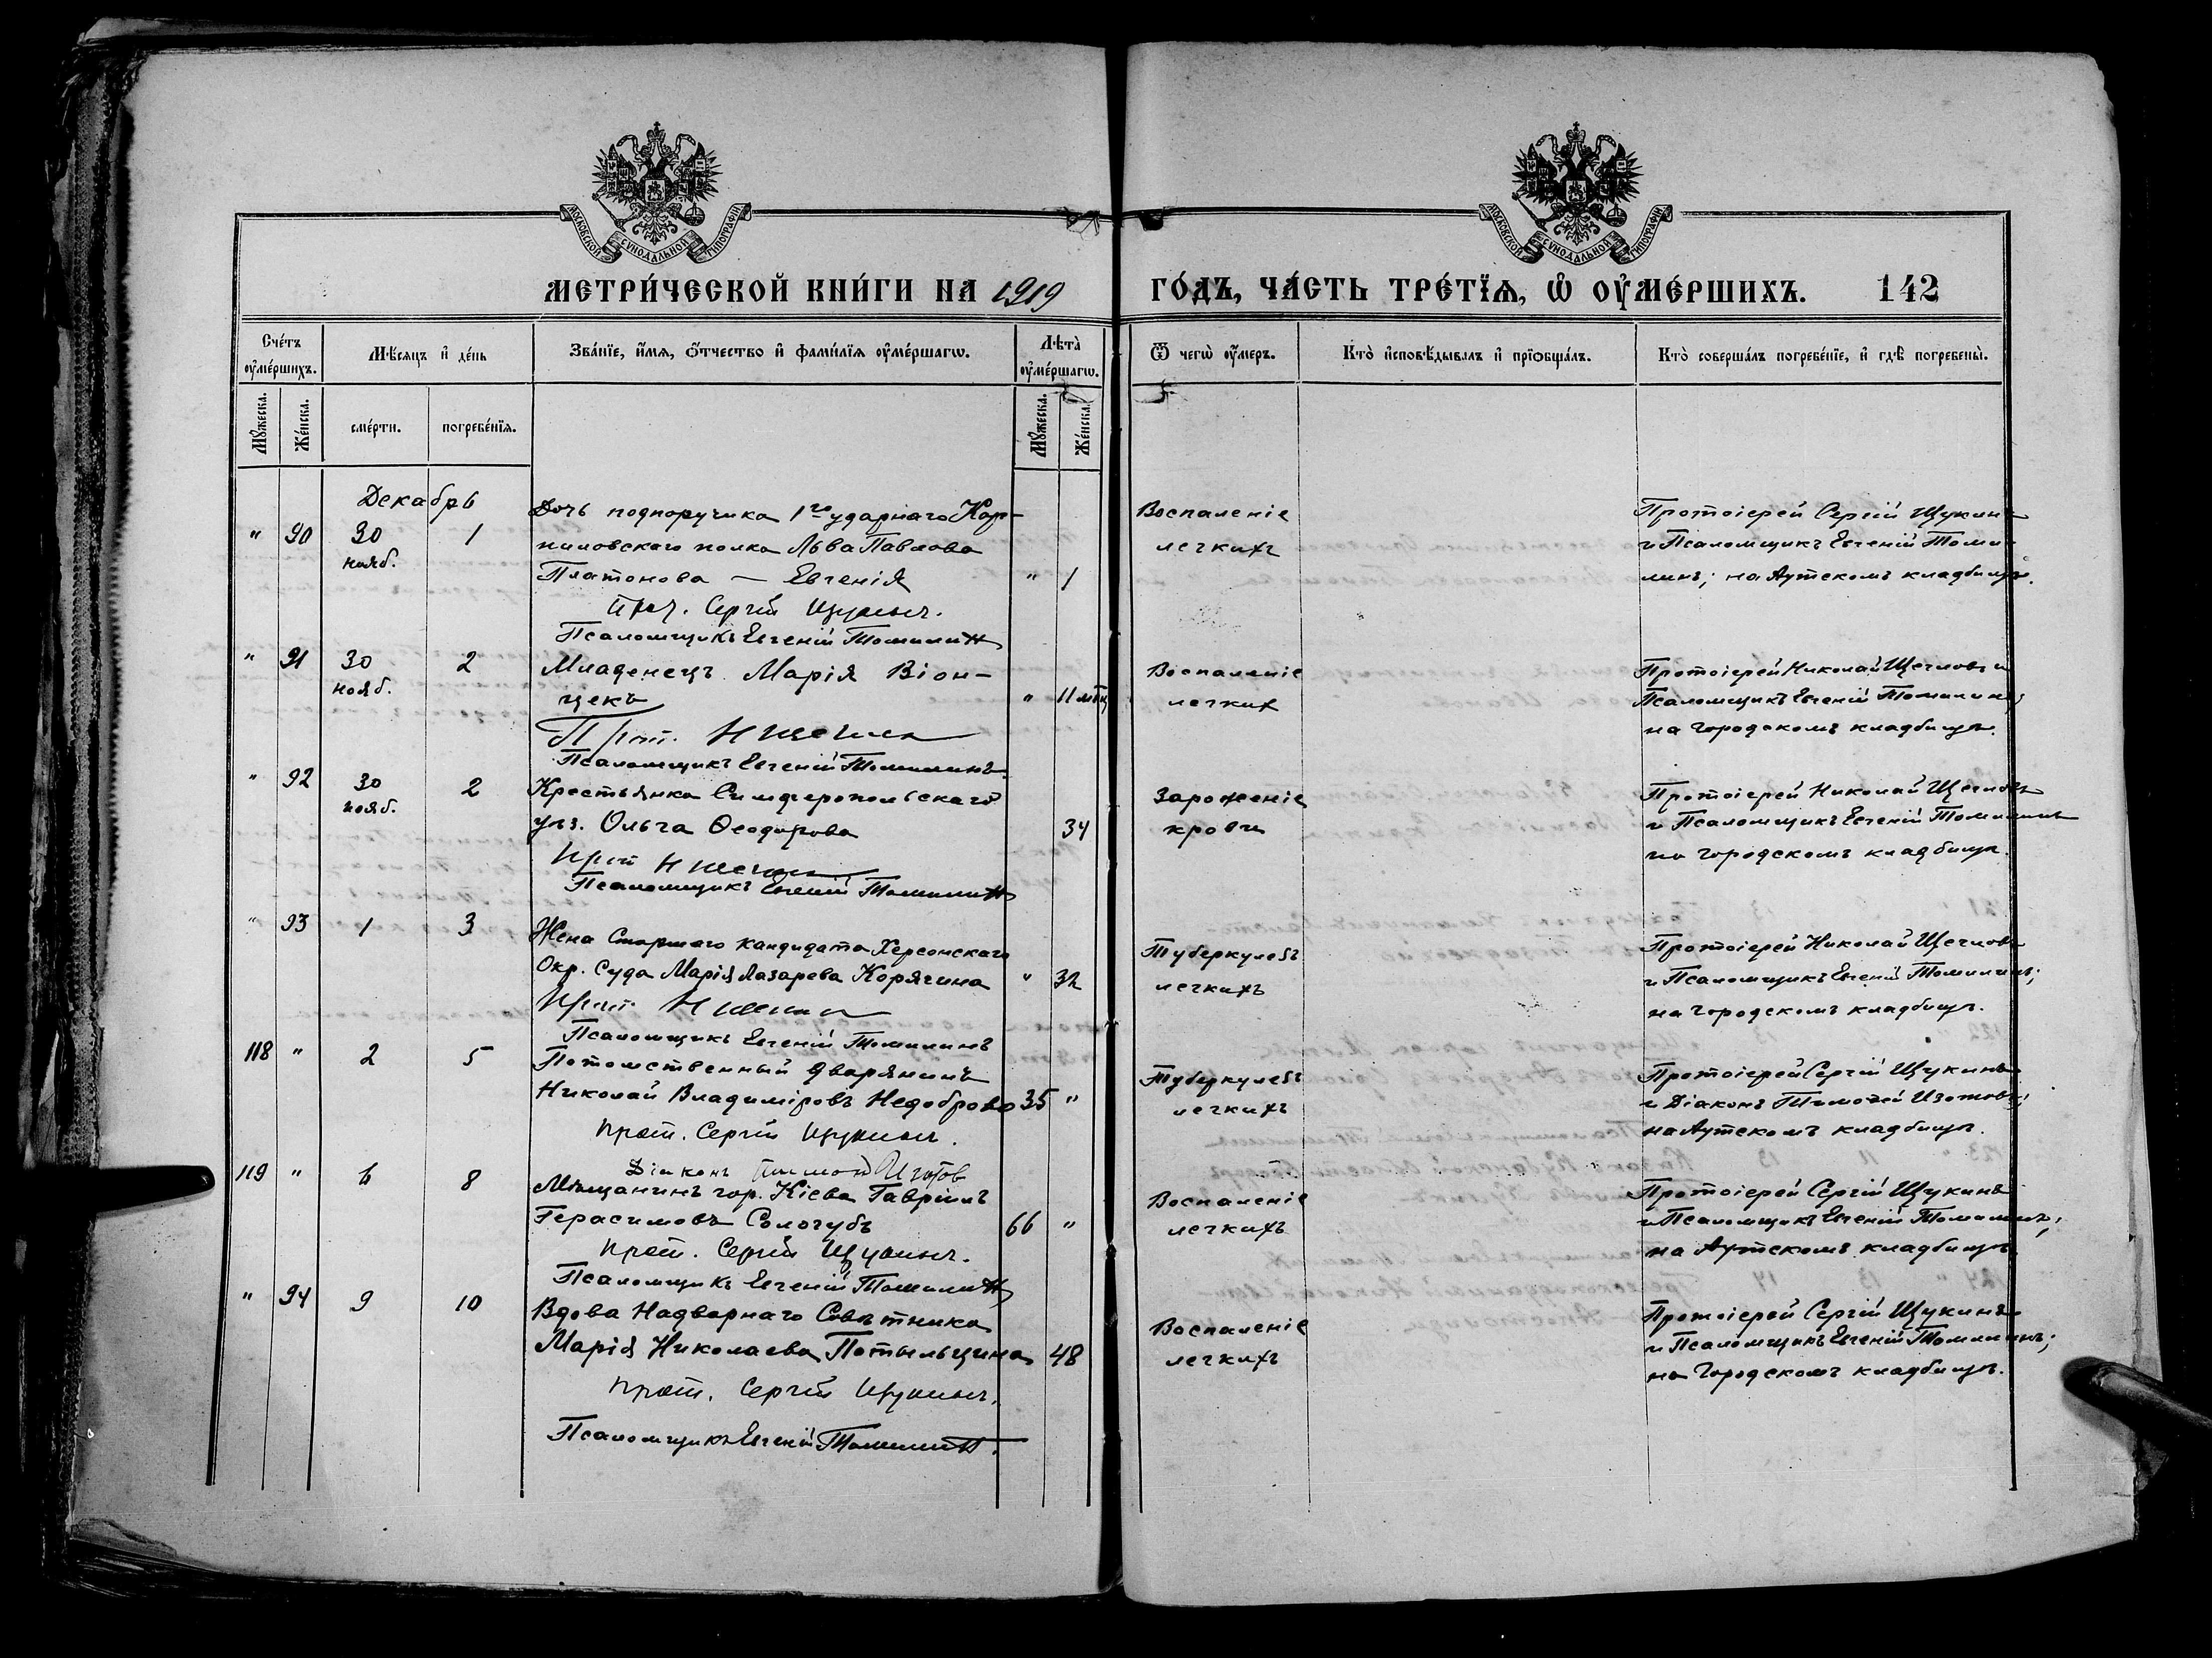 МОСКОВСКОЙ СѴНОДАЛЬНОЙ ТИПОГРАФІИ
МОСКОВСКОЙ СѴНОДАЛЬНОЙ ТИПОГРАФІИ
МЕТРИ́ЧЕСКОЙ КНИ́ГИ НА 1919
ГО́ДЪ, ЧА́СТЬ ТРЕ́ТЇѦ, Ѡ҆ ОУ҆МЕ́РШИХЪ. 142
Сче́тъ оу҆ме́ршихъ.
Мѣ́сяцъ и҆ де́нь
Зва́нїе, и҆́мѧ, ѻ҆́тчество и҆ фами́лїѧ оу҆ме́ршагѡ.
Лѣ́та оу҆ме́ршагѡ.
Ѿ чегѡ̀ оу҆́меръ.
Кто̀ и҆сповѣ́дывалъ и҆ прїѡбща́лъ.
Кто̀ соверша́лъ погребе́нїе, и҆ гдѣ̀ погребены̀.
Мꙋ́жеска.
Же́нска.
сме́рти.
погребе́нїѧ.
Мꙋ́жеска.
Же́нска.
Декабрь
" 90 30 нояб. 1
Дочь подпоручика 1го ударнаго Кор-
ниловскаго полка Льва Павлова
Платонова — Евгенія " 1
Прот. Сергій Щукинъ.
Псаломщикъ Евгеній Томилин
Воспаленіе
легкихъ
Протоіерей Сергій Щукинъ
и Псаломщикъ Евгеній Томи-
линъ; на Аутскомъ кладбищѣ.
" 91 30 нояб. 2
Младенецъ Марія Віон-
цекъ " 11 мѣц
Прот. Н Щегл
Псаломщикъ Евгеній Томилинъ
Воспаленіе
легких
Протоіерей Николай Щегловъ и
Псаломщикъ Евгеній Томилинъ;
на Городскомъ кладбищѣ.
" 92 30 нояб. 2
Крестьянка Симферопольскаго
уѣз. Ольга Ѳеодорова 34
Прот Н Щегл
Псаломщикъ Евгеній Томилин
Зараженіе
крови
Протоіерей Николай Щегловъ
и Псаломщикъ Евгеній Томилинъ
на Городскомъ кладбищѣ.
" 93 1 3
Жена Старшаго Кандидата Херсонскаго
Окр. Суда Марія Лазарева Корягина " 32
Прот Н Щегл
Псаломщикъ Евгеній Томилинъ
Туберкулезъ
легкихъ
Протоіерей Николай Щегловъ
и Псаломщикъ Евгеній Томилинъ;
на Городскомъ кладбищѣ.
118 " 2 5
Потомственный дворянинъ
Николай Владиміровъ Недоброво 35 "
Прот. Сергій Щукинъ.
Діаконъ Тимофей Изотов
Туберкулезъ
легкихъ
Протоіерей Сергій Щукинъ
и Діаконъ Тимофей Изотовъ;
на Аутскомъ кладбищѣ.
119 " 6 8
Мѣщанинъ гор. Кіева Гавріилъ
Герасимовъ Сологубъ 66 "
Прот. Сергій Щукинъ.
Псаломщикъ Евгеній Томилин
Воспаленіе
легкихъ
Протоіерей Сергій Щукинъ
и Псаломщикъ Евгеній Томилинъ;
на Аутскомъ кладбищѣ.
" 94 9 10
Вдова Надворнаго Совѣтника
Марія Николаева Потыльцина 48
Прот. Сергій Щукинъ.
Псаломщикъ Евгеній Томилин.
Воспаленіе
легкихъ
Протоіерей Сергій Щукинъ
и Псаломщикъ Евгеній Томилинъ;
на Городскомъ кладбищѣ.